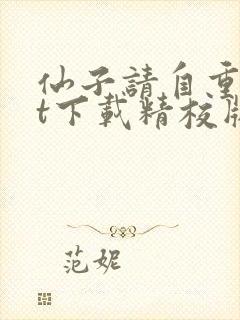 仙子請自重
t下載精校版
范妮